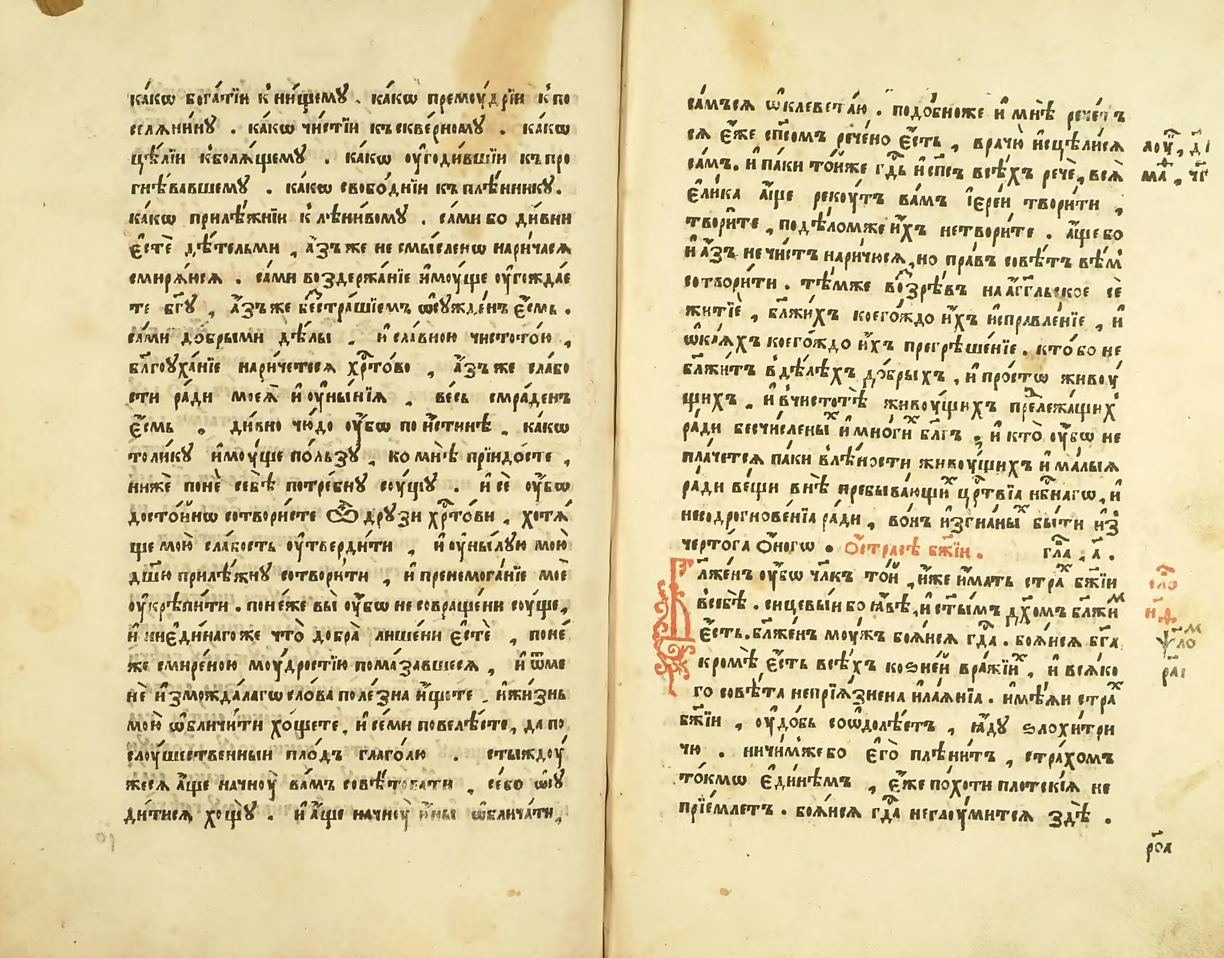 ка́кѡ бога́тїи к ни́щемꙋ . ка́кѡ премоу́дрїи к по
селѧ́нинꙋ . ка́кѡ чи́стїи къ скве́рномꙋ . ка́кѡ
цѣ́лїи к болѧ́щемꙋ . ка́кѡ оу҆годи́вшїи къ про
гнѣ́вавшемꙋ . ка́кѡ свобо́днїи къ плѣ́нникꙋ .
ка́кѡ прилѣ́жнїи к лѣни́вомꙋ . са́ми бо ди́вни
є҆стѐ дѣ́тельми , а҆́зъ же не смы́сленѡ нарича́ѧ
смирѧ́юсѧ . са́ми воздержа́нїе и҆мꙋ́ще оу҆гожда́е
те бг҃ꙋ , а҆́зъ же безстра́шїемъ ѡ҆сꙋжде́нъ є҆́смь .
са́ми до́брыми дѣ́лы , и҆ сла́вною чистото́ю ,
бл҃гоꙋха́нїе нарича́етесѧ хрⷭ҇то́во , а҆́зъ же сла́бо
сти ра́ди моеѧ̀ и҆ оу҆ны́нїѧ , ве́сь смра́денъ
є҆́смь . ди́вно чю́до оу҆́бѡ по и҆́стинѣ . ка́кѡ
толи́кꙋ и҆мꙋ́ще по́льзꙋ , ко мнѣ̀ прїидо́сте ,
нижѐ понѐ себѣ̀ потре́бнꙋ сꙋ́щꙋ . и҆ сѐ оу҆́бѡ
досто́йнѡ сотвори́сте ѽ дрꙋ́зи хрⷭ҇то́ви , хотѧ́
ще мою̀ сла́бость оу҆тверди́ти , и҆ оу҆ны́лꙋю мою̀
дш҃ꙋ прилѣ́жнꙋ сотвори́ти , и҆ пренемога́нїе моѐ
оу҆крѣпи́ти . поне́же вы̀ оу҆́бѡ не совраще́ни сꙋ́ще ,
и҆ ни є҆ди́наго же что̀ добра̀ лише́ни є҆стѐ , поне́
же смире́ною моу́дростїю пома́завшесѧ , и҆ ѿ ме
нѐ и҆змождалагѡ сло́ва поле́зна и҆́щете . и҆ жи́знь
мою̀ ѡ҆бличи́ти хо́щете , и҆ се́ми повелѣ́сте , да по
слоу́шественныи пло́дъ глаго́лю . стыждоу́
жесѧ а҆́ще начноу̀ ва́мъ совѣ́товати , се́бо ѡ҆сꙋ
ди́тисѧ хощꙋ̀ . и҆ а҆́ще начноу̀ и҆́ны ѡ҆блича́ти ,
са́мъ сѧ ѡ҆клевета́ю . подо́бно же и҆ мнѣ̀ рече́тъ
сѧ є҆́же сп҃сомъ рече́но є҆́сть , врачю̀ и҆сцѣли́сѧ
са́мъ . и҆ па́ки то́йже гдⷭ҇ь и҆ сп҃съ всѣ́хъ речѐ , всѧ̀
є҆ли́ка а҆́ще рекꙋ́тъ ва́мъ і҆ере́и твори́ти ,
твори́те , по дѣло́мже и҆́хъ не твори́те . а҆́ще бо
и҆ а҆́зъ не чи́стъ нарича́юсѧ , но пра́въ совѣ́тъ всѣ́мъ
сотвори́ти . тѣ́мже возрѣ́въ на а҆́гг҃льское се
житїѐ , бл҃жи́хъ коего́ждо и҆́хъ и҆справле́нїе , и҆
ѡ҆ка́ѧхъ коего́ждо и҆́хъ прегрѣше́нїе . кто́ бо не
бл҃жи́тъ в дѣ́лѣхъ до́брыхъ , и҆ про́стѡ живоу́
щихъ . и҆ в чистотѣ̀ живоу́щихъ прⷣележа́щихъ
ра́ди бесчи́слены́хъ и҆ мно́гихъ бл҃гъ . и҆ кто̀ оу҆́бѡ не
пла́четсѧ па́ки в лѣ́ности живоу́щихъ и҆ ма́лыѧ
ра́ди ве́щи внѣ̀ пребыва́ющихъ црⷭ҇твїѧ нбⷭ҇нагѡ , и҆
несодрогнове́нїѧ ра́ди , во́нъ и҆згнаны́хъ бы́ти и҆з
черто́га ѻ҆́ногѡ . Ѡ҆ стра́сѣ бж҃їи . гла҃ . а҃ .
Бл҃же́нъ оу҆́бѡ чл҃къ то́й , и҆́же и҆́мать стра́хъ бж҃їи
в себѣ̀ . сицевы́и бо ꙗ҆́вѣ , и҆ ст҃ы́мъ дх҃омъ бл҃жи́мъ
є҆́сть . бл҃же́нъ моу́жъ боѧ́йсѧ гдⷭ҇а . боѧ́йсѧ бг҃а
кромѣ̀ є҆́сть всѣ́хъ ко́зней вра́жїихъ , и҆ всѧ́ко
го совѣ́та непрїѧ́знена и҆ лаѧ́нїѧ . и҆мѣ́ѧи стра́хъ
бж҃їи , оу҆до́бь соѡдолѣ́етъ , ꙗ҆́дꙋ ѕлохи́три
чю . ничи́мже бо є҆го̀ плѣни́тъ , стра́хомъ
то́кмѡ є҆ди́нѣмъ , є҆́же по́хоти пло́тскїѧ не
прїе́млетъ . боѧ́йсѧ гдⷭ҇а не глаꙋми́тсѧ здѣ̀ .
лоу , д҃і
ма , ч҃г
сло
н҃ф
ѱло
ра҃і
ро҃а